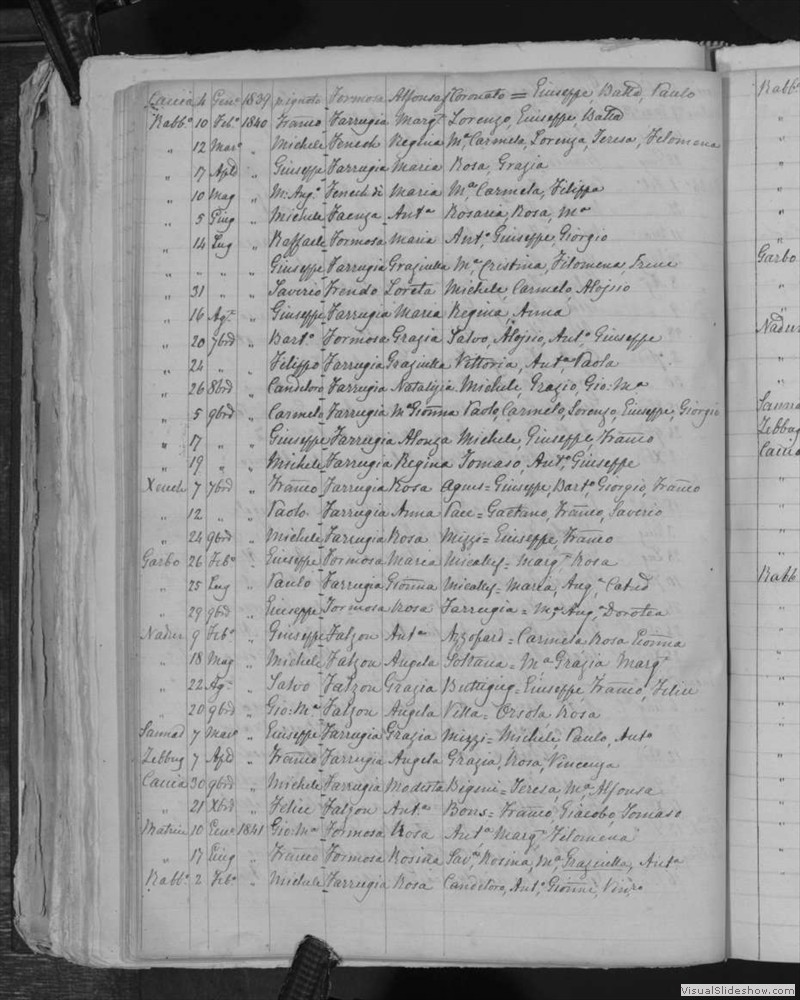 Caccia 4 Gen.o 1839 pignolo Formosa Alfonsa Coronato = Giuseppe, Batta, Paulo
Rabb.o 10 Feb.o 1840 Franco Farrugia Marg.a Lorenzo, Giuseppe, Batta
" 12 Mar.o " Michele Fenech Regina M.a Carmela, Lorenza, Teresa, Filomena
" 17 Aple " Giuseppe Farrugia Maria Rosa, Grazia
" 10 Mag " M. Ang.o Fenech di Maria M.a Carmela, Filippa
" 5 Giug " Michele Faenza Ant.a Rosaria, Rosa, M.a
" 14 Lug " Raffaele Formosa Maria Ant.o Giuseppe, Giorgio
" " " Giuseppe Farrugia Graziulla M.a Cristina, Filomena, Irene
" 31 " Saverio Frendo Loreta Michele, Carmelo, Aloisio
" 16 Ag.to " Giuseppe Farrugia Maria Regina, Anna
" 20 7bre " Bart.o Formosa Grazia Salvo, Aloisio, Ant.o Giuseppe
" 24 " " Filippo Farrugia Graziulla Vittoria, Ant.a Paola
" 26 8bre " Candeloro Farrugia Natalizia Michele, Grazio, Gio: M.a
" 5 9bre " Carmelo Farrugia M.a Gionna Paolo, Carmelo, Lorenzo, Giuseppe, Giorgio
" 17 " " Giuseppe Farrugia Alonza Michele, Giuseppe, Franco
" 19 " " Michele Farrugia Regina Tomaso, Ant.o Giuseppe
Xeuch 7 7bre " Franco Farrugia Rosa Agius = Giuseppe, Bart.o Giorgio, Franco
" 12 " " Paolo Farrugia Anna Pace = Gaetano, Franco, Saverio
" 24 9bre " Michele Farrugia Rosa Mizzi = Giuseppe, Franco
Garbo 26 Feb.o " Giuseppe Formosa Maria Micallef = Marg.a Rosa
" 25 Lug " Paulo Farrugia Gionna Micallef = Maria, Ang.a Cat.a
" 29 9bre " Giuseppe Formosa Rosa Farrugia = M.a Ang.a Dorotea
Nadur 9 Feb.o " Giuseppe Falzon Ant.a Azzopard = Carmela Rosa Gionna
" 18 Mag " Michele Falzon Angela Soltana = M.a Grazia Marg.a
" 22 Ag.to " Salvo Falzon Grazia Buttigieg = Giuseppe Franco, Felice
" 20 9bre " Gio: M.a Falzon Angela Vella = Orsola Rosa
Sannat 7 Mar.o " Giuseppe Farrugia Grazia Mizzi = Michele, Paulo, Ant.o
Zebbug 7 Aple " Franco Farrugia Angela Grazia, Rosa, Vincenza
Caccia 30 9bre " Michele Farrugia Modesta Bigeni = Teresa, M.a Alfonsa
" 21 Xbre " Felice Falzon Ant.a Bons = Franco, Giacobo, Tomaso
Matrice 10 Gen.o 1841 Gio: M.a Formosa Rosa Ant.a Marg.a Filomena
" 17 Giug " Franco Formosa Rosina Sav.a Rosina, M.a Graziulla, Ant.a
Rabb.o 2 Feb.o " Michele Farrugia Rosa Candeloro, Ant.o Gionni, Vinc.o
Rabb.o
Garbo
Nadur
Sannat
Zebbug
Caccia
Rabb.o
VisualSlideshow.com